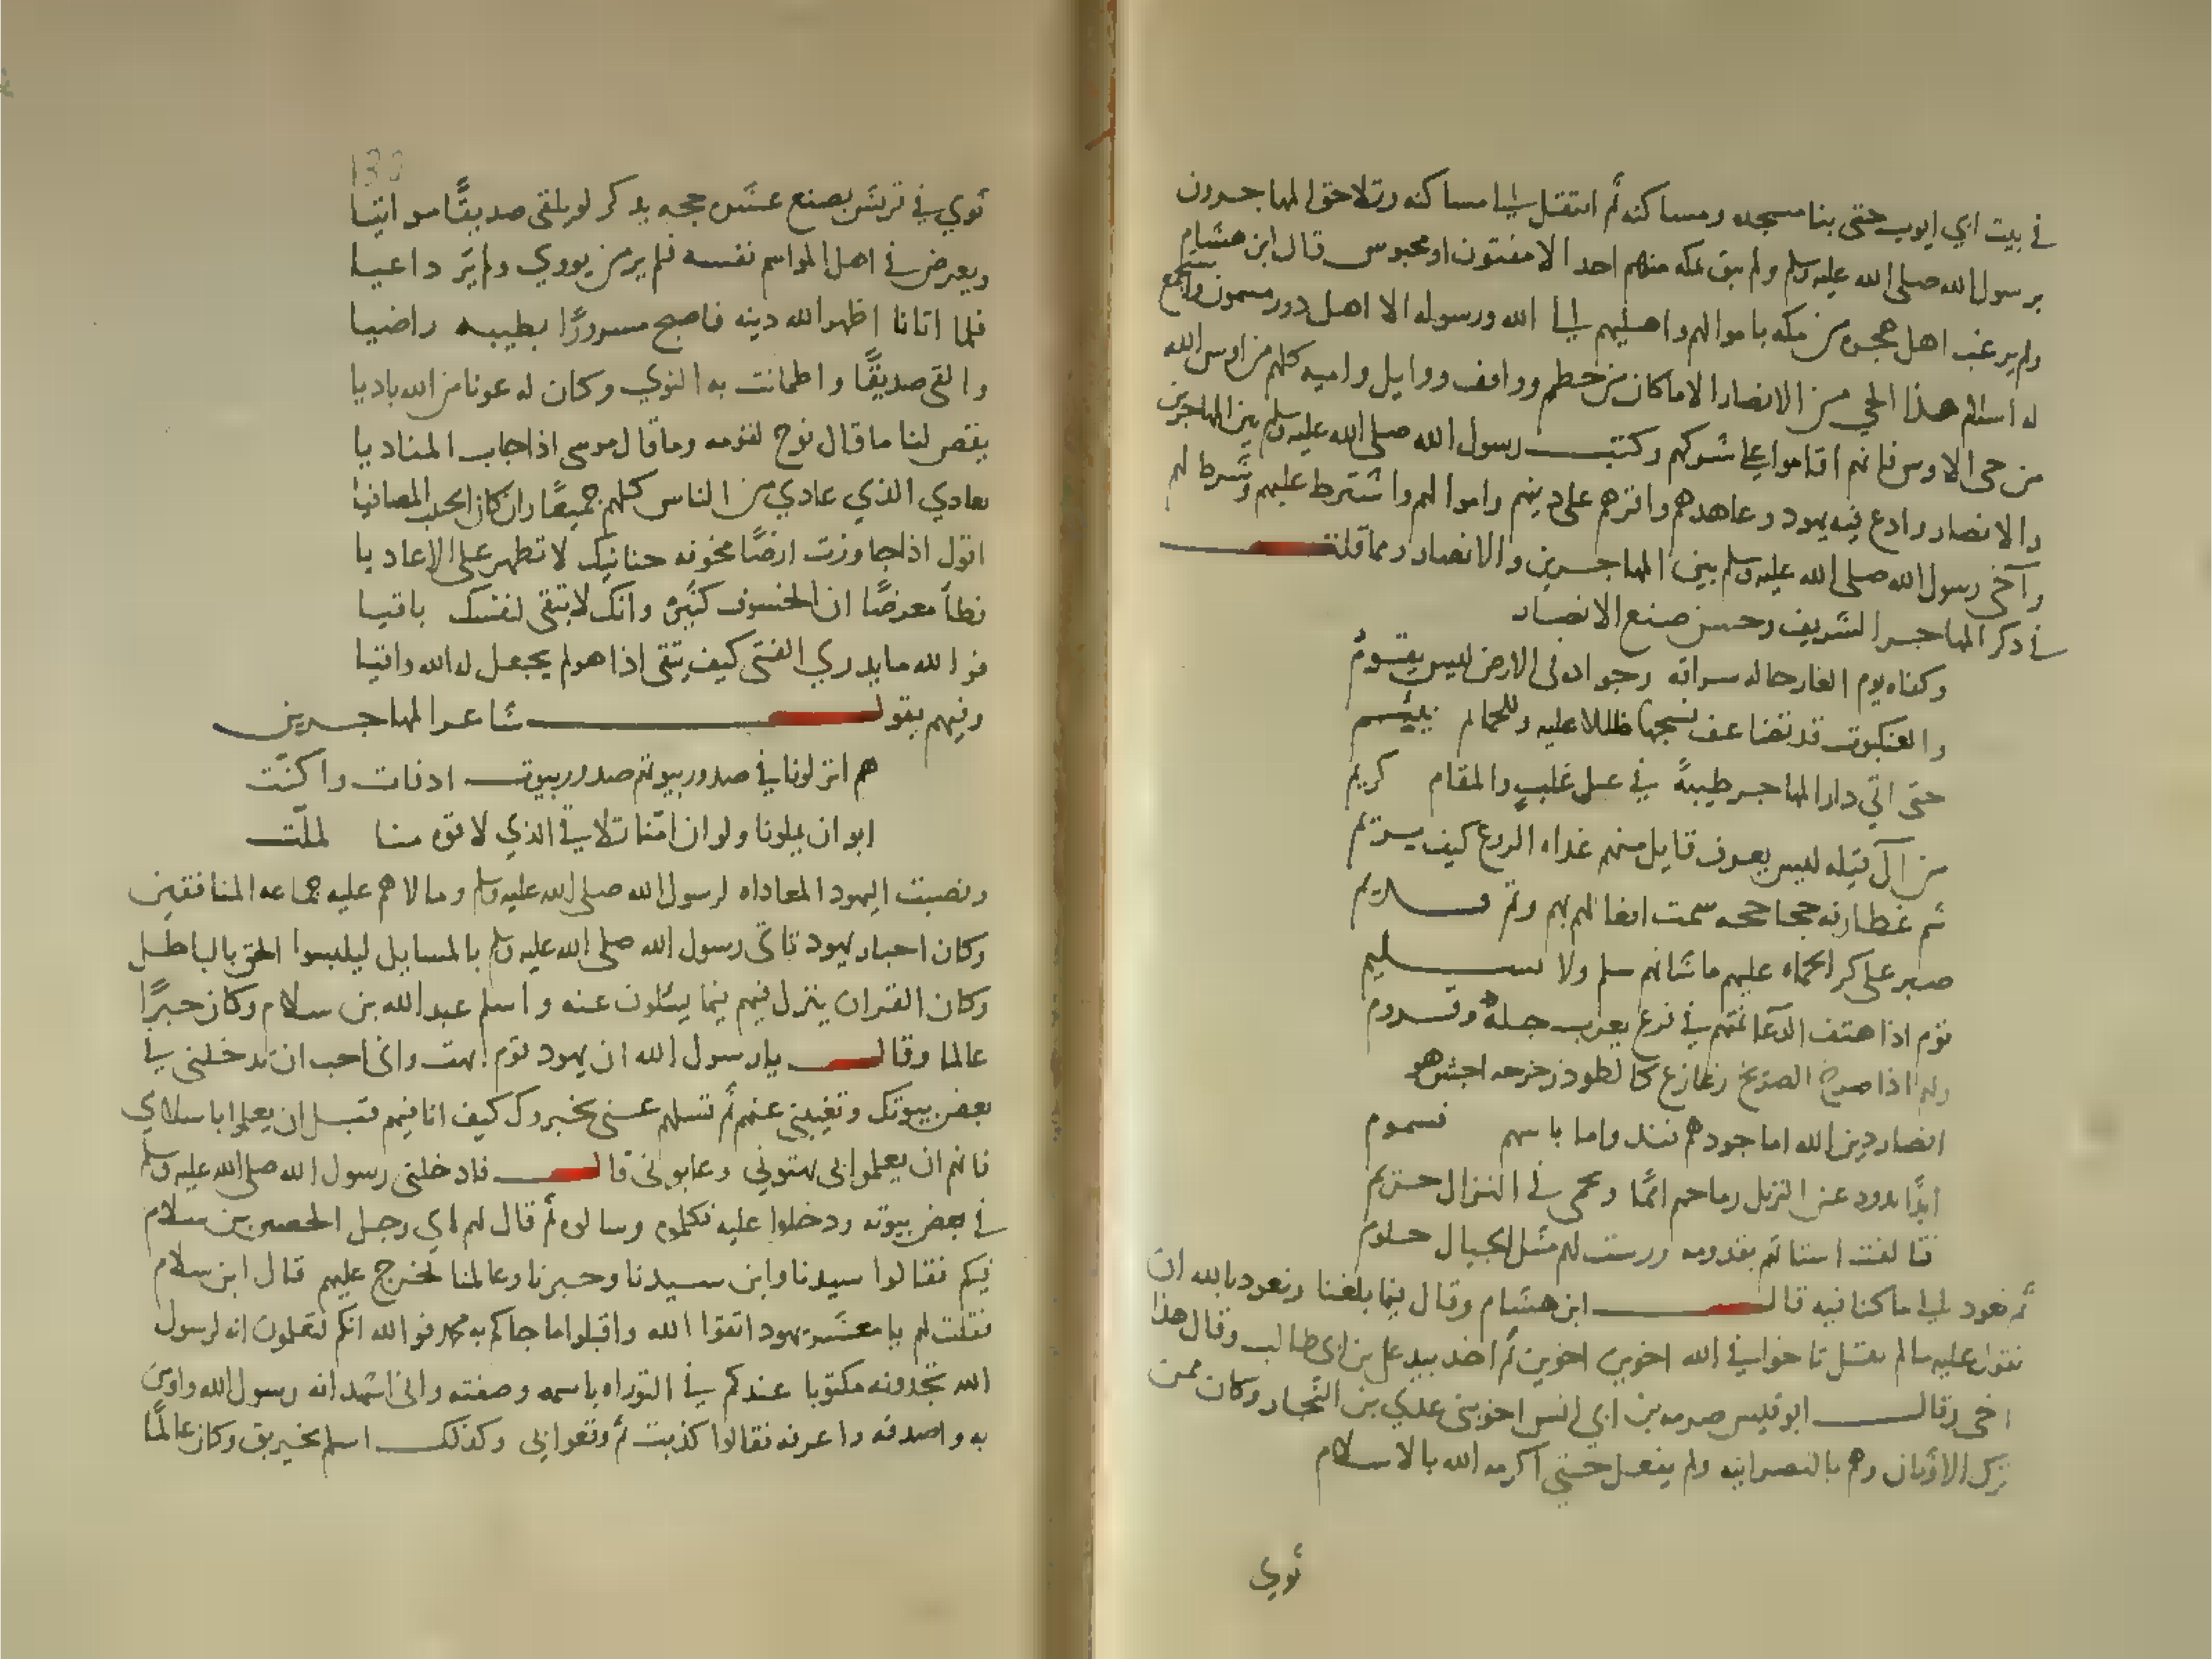 في بيت ابي ايوب حتى بنا مسجده ومساكنه ثم انتقل الى مساكنه وتلاحق المهاجرون
برسول الله صلى الله عليه وسلم ولم يبق بمكه منهم احد الا مفتون او محبوس قال ابن هشام
ولم يرعب اهل هجره من مكه باموالهم واهليهم الى الله ورسوله الا اهل دور مسمون واجمع
له اسلام هذا الحي من الانصار الا ما كان من خطم وواقف ووايل واميه كلهم من اوس الله
من حى الاوس فانهم اقاموا على شركهم وكتب رسول الله صلى الله عليه وسلم بين المهاجرين
والانصار وادع فيه يهود وعاهدهم واقرهم على دينهم واموالهم واشترط عليهم وشرط لهم
وآخى رسول الله صلى الله عليه وسلم بين المهاجرين والانصار ومما قلته
في ذكر المهاجر الشريف وحسن صنع الانصار
وكفاه يوم الغار حاله سراقه وجواد فى الارض ليس يقوم
والعنكبوت قد نسجها ظللا عليه وللحمام
حتى اتي دار المهاجر طيبةً في والمقام كريم
من آل قيله ليس يعرف قايل منهم غداه الروع كيف يريم
شم غطارفه جحاجحه سمت افعالهم بهم
صبر على كر الحماه عليهم ما شانهم سلم ولا تسليم
قوم اذا هتف في فرع يعرب جلة وقروم
ولهم اذا صرخ الصريخ كالطود
انصار دين الله اما جودهم فند واما باسهم فسموم
ابدًا عن النزيل رماحهم وهم في النزال
مثل الجبال حلوم
ثم نعود الى ما كنا فيه قال ابن هشام وقال فيما بلغنا ونعوذ بالله ان
نقول عليه ما لم يقل تاخوا في الله اخوين اخوين ثم اخذ بيد علي بن ابى طالب وقال هذا
اخى وقال ابو قيس صرمه بن ابي انس اخو بنى عدي بن النجار وكان ممن
ترك الاوثان وهم بالنصرانيه ولم يفعل حتى اكرمه الله بالاسلام
ثوي
130
ثوي في قريش بضع عشره حجه يذكر لو يلقى صديقًا مواتيا
ويعرض في اهل المواسم نفسه فلم ير من يووي ولم يَر داعيا
فلما اتانا اظهر الله دينه فاصبح مسرورًا بطيبه راضيا
والقى صديقًا واطمانت به النوي وكان له عونا من الله باديا
يقص لنا ما قال نوح لقومه وما قال موسى اذ اجاب المناديا
نعادي الذي عادي من الناس كلهم جميعًا وان كان الحبيب المصافيا
اقول اذا جاوزت ارضًا مخوفه حنانيك لا تظهر على الاعاديا
فطأ معرضًا ان الحتوف كثيره وانك لا تبقى لنفسك باقيا
فوالله ما يدري الفتى كيف يتقى اذا هو لم يجعل له الله واقيا
وفيهم يقول شاعر المهاجرين
هم انزلونا في صدور بيوتهم صدور بيوت ادفات واكنّت
ابوا ان يملونا ولو ان امّنا تلاقي الذي لاقوه منا لملّت
ونصبت اليهود المعاداه لرسول الله صلى الله عليه وسلم ومالاهم عليه جماعه المنافقين
وكان احبار يهود تاتى رسول الله صلى الله عليه وسلم بالمسايل ليلبسوا الحق بالباطل
وكان القران ينزل فيهم فيما يسئلون عنه واسلم عبد الله بن سلام وكان حبرًا
عالما وقال يا رسول الله ان يهود قوم بهت وانى احب ان تدخلنى في
بعض بيوتك وتغيبنى عنهم ثم تسلهم عنى يخبروك كيف انا فيهم قبل ان يعلموا باسلامي
فانهم ان يعلموا به بهتوني وعابونى قال فادخلنى رسول الله صلى الله عليه وسلم
في بعض بيوته ودخلوا عليه فكلموه وسالوه ثم قال لهم اي رجل الحصين بن سلام
فيكم فقالوا سيدنا وابن سيدنا وحبرنا وعالمنا فخرج عليهم قال ابن سلام
فقلت لهم يا معشر يهود اتقوا الله واقبلوا ما جاكم به محمد فوالله انكم لتعلمون انه لرسول
الله تجدونه مكتوبا عندكم في التوراه باسمه وصفته وانى اشهد انه رسول الله واومن
به واصدقه واعرفه فقالوا كذبت ثم وقعوا بى وكذلك اسلم مخيريق وكان عالمًا